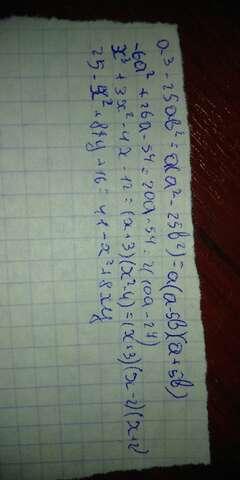 a3 - 25ab² = a(a² - 25b²) = a(a-5b)(a+5b)
-6a² + 26a - 54 = 20a - 54 = 2(10a - 27)
x³ + 3x² - 4x - 12 = (x+3)(x²-4) = (x+3)(x-2)(x+2)
25 - x² + 8xy + 16 = 41 - x² + 8xy